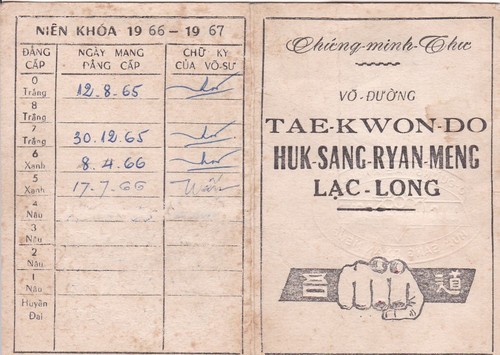 NIÊN KHÓA 19 66 - 19 67
ĐẲNG CẤP NGÀY MANG ĐẲNG CẤP CHỮ KÝ CỦA VÕ-SƯ
0 Trắng 12.8.65
8 Trắng
7 Trắng 30.12.65
6 Xanh 8.4.66
5 Xanh 17.7.66
4 Nâu
3 Nâu
2 Nâu
1 Nâu
Huyền Đai
Chứng-minh-Thư
VÕ-ĐƯỜNG
TAE-KWON-DO
HUK-SANG-RYAN-MENG
LẠC-LONG
道